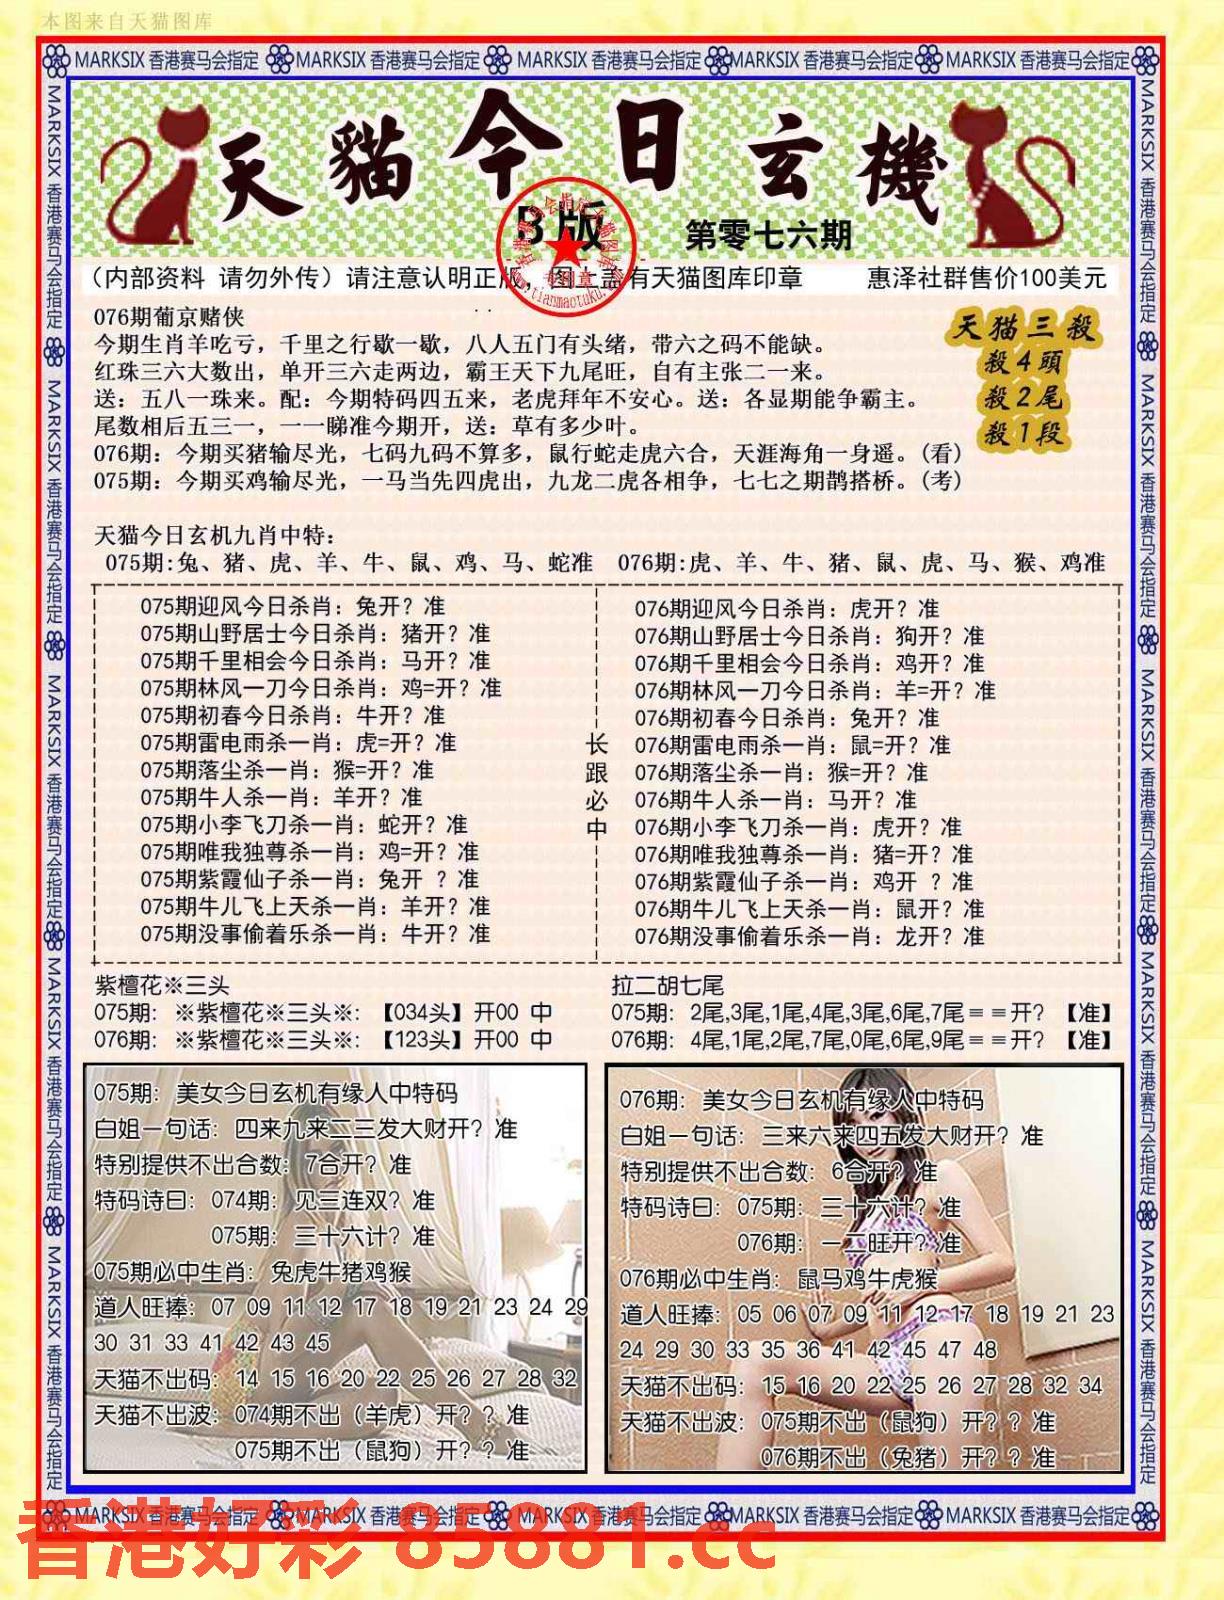 本图来自天猫图库
MARKSIX 香港赛马会指定 MARKSIX 香港赛马会指定 MARKSIX 香港赛马会指定 MARKSIX 香港赛马会指定 MARKSIX 香港赛马会指定
天貓今日玄機
B版
第零七六期
(内部资料 请勿外传)请注意认明正版,图上盖有天猫图库印章 惠泽社群售价100美元
专用章
www.tianmaotuku.com
076期葡京赌侠
今期生肖羊吃亏,千里之行歇一歇,八人五门有头绪,带六之码不能缺。
红珠三六大数出,单开三六走两边,霸王天下九尾旺,自有主张二一来。
送:五八一珠来。配:今期特码四五来,老虎拜年不安心。送:各显期能争霸主。
尾数相后五三一,一一睇准今期开,送:草有多少叶。
076期:今期买猪输尽光,七码九码不算多,鼠行蛇走虎六合,天涯海角一身遥。(看)
075期:今期买鸡输尽光,一马当先四虎出,九龙二虎各相争,七七之期鹊搭桥。(考)
天猫三殺
殺4頭
殺2尾
殺1段
天猫今日玄机九肖中特:
075期:兔、猪、虎、羊、牛、鼠、鸡、马、蛇准 076期:虎、羊、牛、猪、鼠、虎、马、猴、鸡准
075期迎风今日杀肖:兔开?准
075期山野居士今日杀肖:猪开?准
075期千里相会今日杀肖:马开?准
075期林风一刀今日杀肖:鸡=开?准
075期初春今日杀肖:牛开?准
075期雷电雨杀一肖:虎=开?准
075期落尘杀一肖:猴=开?准
075期牛人杀一肖:羊开?准
075期小李飞刀杀一肖:蛇开?准
075期唯我独尊杀一肖:鸡=开?准
075期紫霞仙子杀一肖:兔开 ?准
075期牛儿飞上天杀一肖:羊开?准
075期没事偷着乐杀一肖:牛开?准
长跟必中
076期迎风今日杀肖:虎开?准
076期山野居士今日杀肖:狗开?准
076期千里相会今日杀肖:鸡开?准
076期林风一刀今日杀肖:羊=开?准
076期初春今日杀肖:兔开?准
076期雷电雨杀一肖:鼠=开?准
076期落尘杀一肖:猴=开?准
076期牛人杀一肖:马开?准
076期小李飞刀杀一肖:虎开?准
076期唯我独尊杀一肖:猪=开?准
076期紫霞仙子杀一肖:鸡开 ?准
076期牛儿飞上天杀一肖:鼠开?准
076期没事偷着乐杀一肖:龙开?准
紫檀花※三头
075期:※紫檀花※三头※:【034头】开00 中
076期:※紫檀花※三头※:【123头】开00 中
拉二胡七尾
075期:2尾,3尾,1尾,4尾,3尾,6尾,7尾==开?【准】
076期:4尾,1尾,2尾,7尾,0尾,6尾,9尾==开?【准】
075期:美女今日玄机有缘人中特码
白姐一句话:四来九来二三发大财开?准
特别提供不出合数:7合开?准
特码诗曰:074期:见三连双?准
075期:三十六计?准
075期必中生肖:兔虎牛猪鸡猴
道人旺捧:07 09 11 12 17 18 19 21 23 24 29
30 31 33 41 42 43 45
天猫不出码:14 15 16 20 22 25 26 27 28 32
天猫不出波:074期不出(羊虎)开??准
075期不出(鼠狗)开??准
076期:美女今日玄机有缘人中特码
白姐一句话:三来六来四五发大财开?准
特别提供不出合数:6合开?准
特码诗曰:075期:三十六计?准
076期:一二旺开?准
076期必中生肖:鼠马鸡牛虎猴
道人旺捧:05 06 07 09 11 12 17 18 19 21 23
24 29 30 33 35 36 41 42 45 47 48
天猫不出码:15 16 20 22 25 26 27 28 32 34
天猫不出波:075期不出(鼠狗)开??准
076期不出(兔猪)开??准
MARKSIX 香港赛马会指定 MARKSIX 香港赛马会指定 MARKSIX 香港赛马会指定 MARKSIX 香港赛马会指定 MARKSIX 香港赛马会指定
MARKSIX 香港赛马会指定 MARKSIX 香港赛马会指定 MARKSIX 香港赛马会指定 MARKSIX 香港赛马会指定 MARKSIX 香港赛马会指定
MARKSIX 香港赛马会指定 MARKSIX 香港赛马会指定 MARKSIX 香港赛马会指定 MARKSIX 香港赛马会指定 MARKSIX 香港赛马会指定
香港好彩 85881.cc